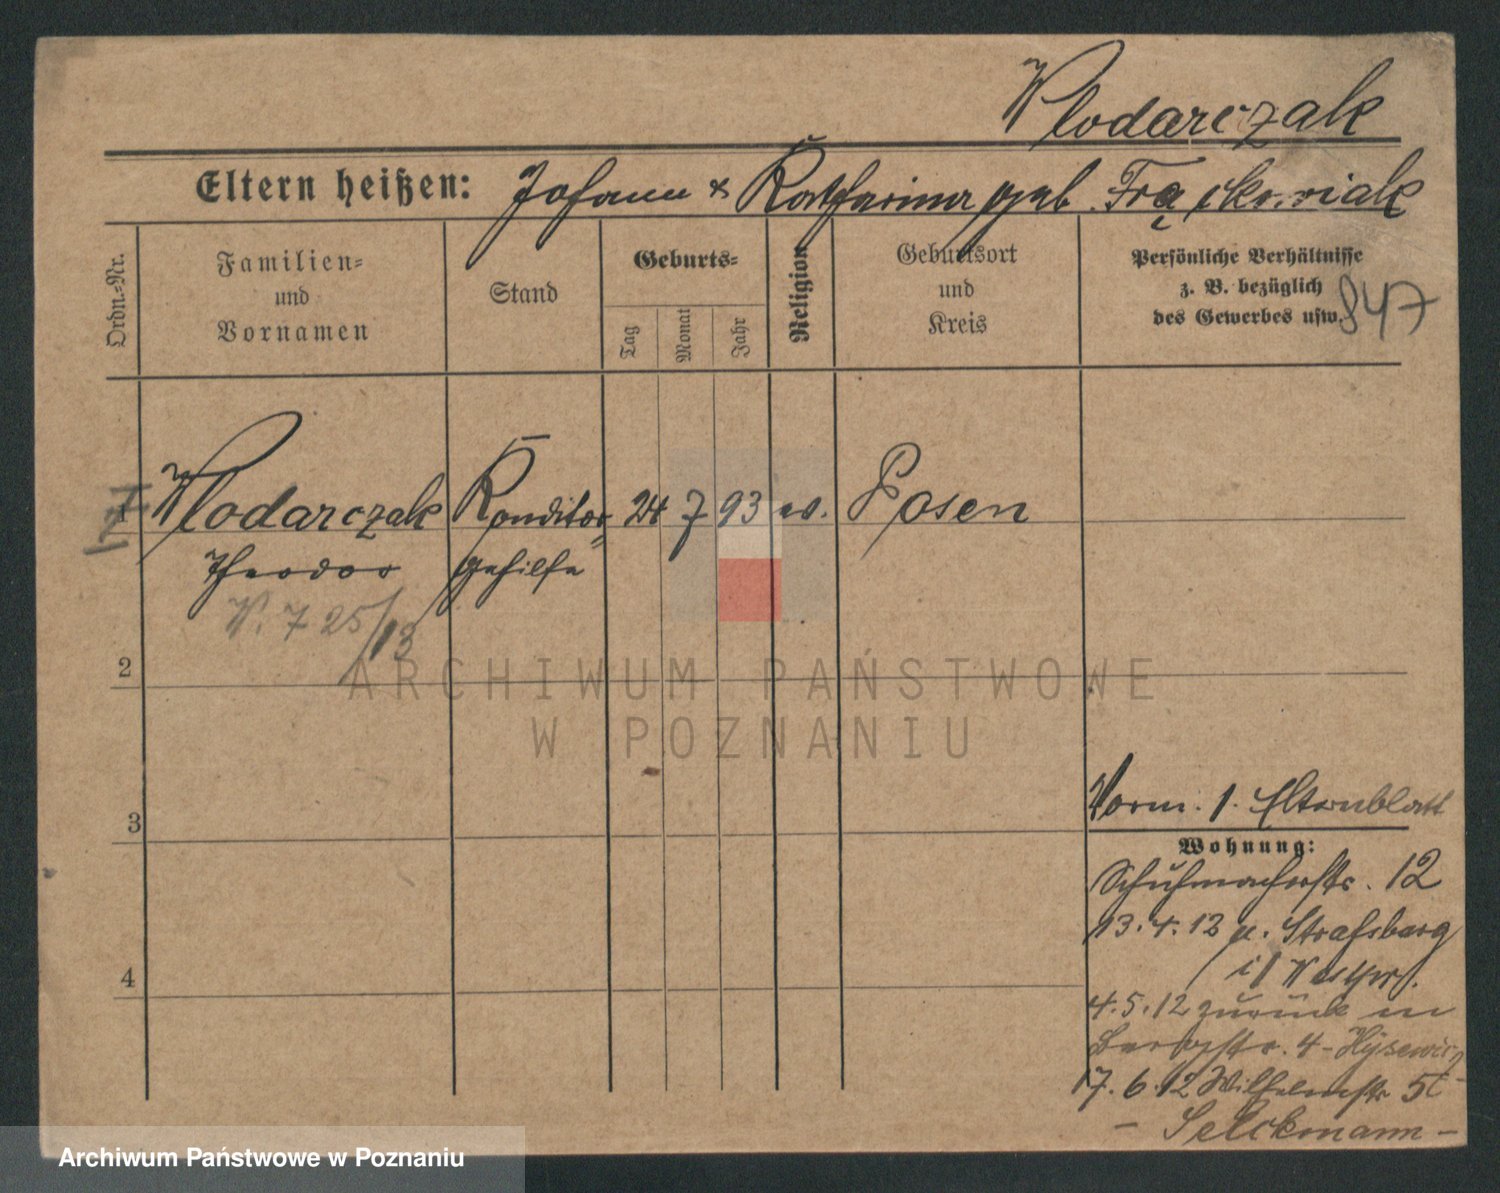 Wlodarczak
Eltern heißen: Johann & Katharina geb. Frąckowiak
Ordn.-Nr.
Familien-
und
Vornamen
Stand
Geburts-
Tag
Monat
Jahr
Religion
Geburtsort
und
Kreis
Persönliche Verhältnisse
z. B. bezüglich
des Gewerbes usw.
847
1 Wlodarczak Konditor 24 7 93 Posen
Theodor gehilfe
W. 7 25/13
2
3
4
Vorm. 1. Elternblatt
Wohnung:
Schuhmacherstr. 12
13.4.12 n. Strasburg
i/ Westpr.
4.5.12 zurück in
Bergstr. 4 -
17.6.12 Wilhelmstr 5
- Selckmann -
ARCHIWUM PAŃSTWOWE
W POZNANIU
Archiwum Państwowe w Poznaniu